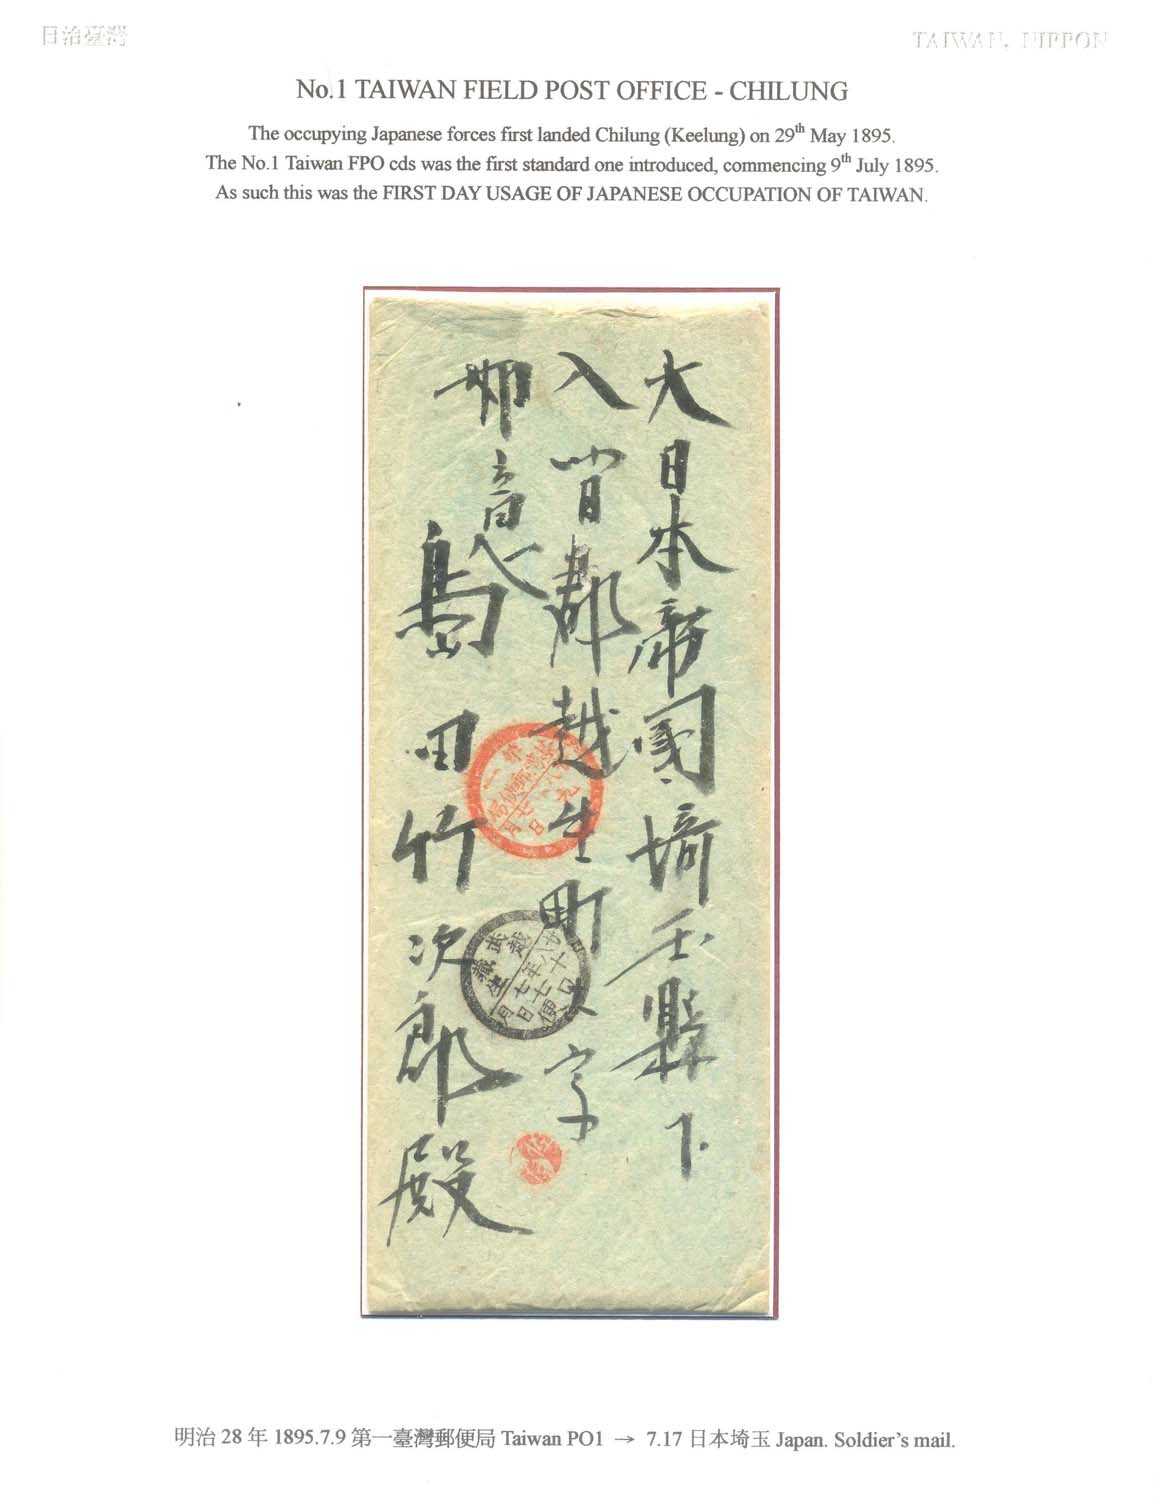 日治臺灣
TAIWAN, NIPPON
No.1 TAIWAN FIELD POST OFFICE - CHILUNG
The occupying Japanese forces first landed Chilung (Keelung) on 29th May 1895.
The No.1 Taiwan FPO cds was the first standard one introduced, commencing 9th July 1895.
As such this was the FIRST DAY USAGE OF JAPANESE OCCUPATION OF TAIWAN.
大日本帝國埼玉縣下
入間郡越生町大字
島田竹次郎殿
第一
臺灣郵便局
廿八年
七月九日
武藏
越生
廿八年
七月十七日
便
明治 28 年 1895.7.9 第一臺灣郵便局 Taiwan PO1 → 7.17 日本埼玉 Japan. Soldier's mail.